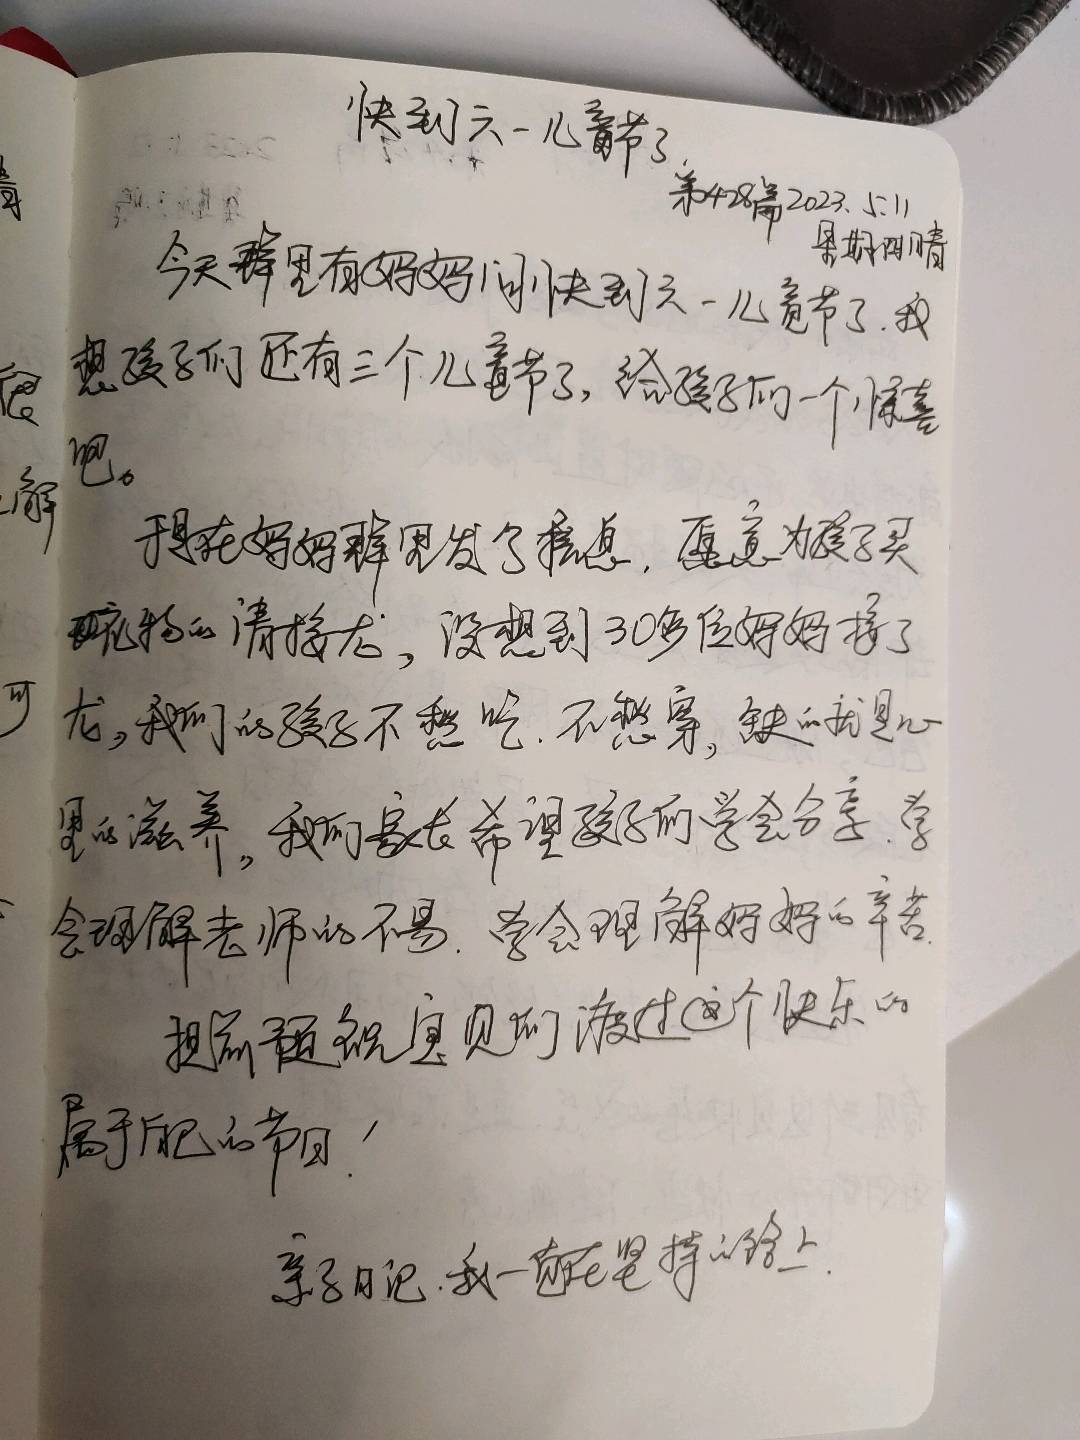 快到六一儿童节了.
第428篇2023.5.11
星期四晴
今天群里有妈妈们问快到六一儿童节了.我
想孩子们还有三个儿童节了,给孩子们一个惊喜
吧。
于是在妈妈群里发了信息.愿意为孩子买
礼物的请接龙,没想到30多位妈妈接了
龙,我们的孩子不愁吃.不愁穿,缺的就是心
里的滋养,我们家长希望孩子们学会分享.学
会理解老师的不易.学会理解妈妈的辛苦.
提前预祝宝贝们渡过这个快乐的
属于自己的节日!
亲子日记.我一直在坚持的路上.
晴
解
可